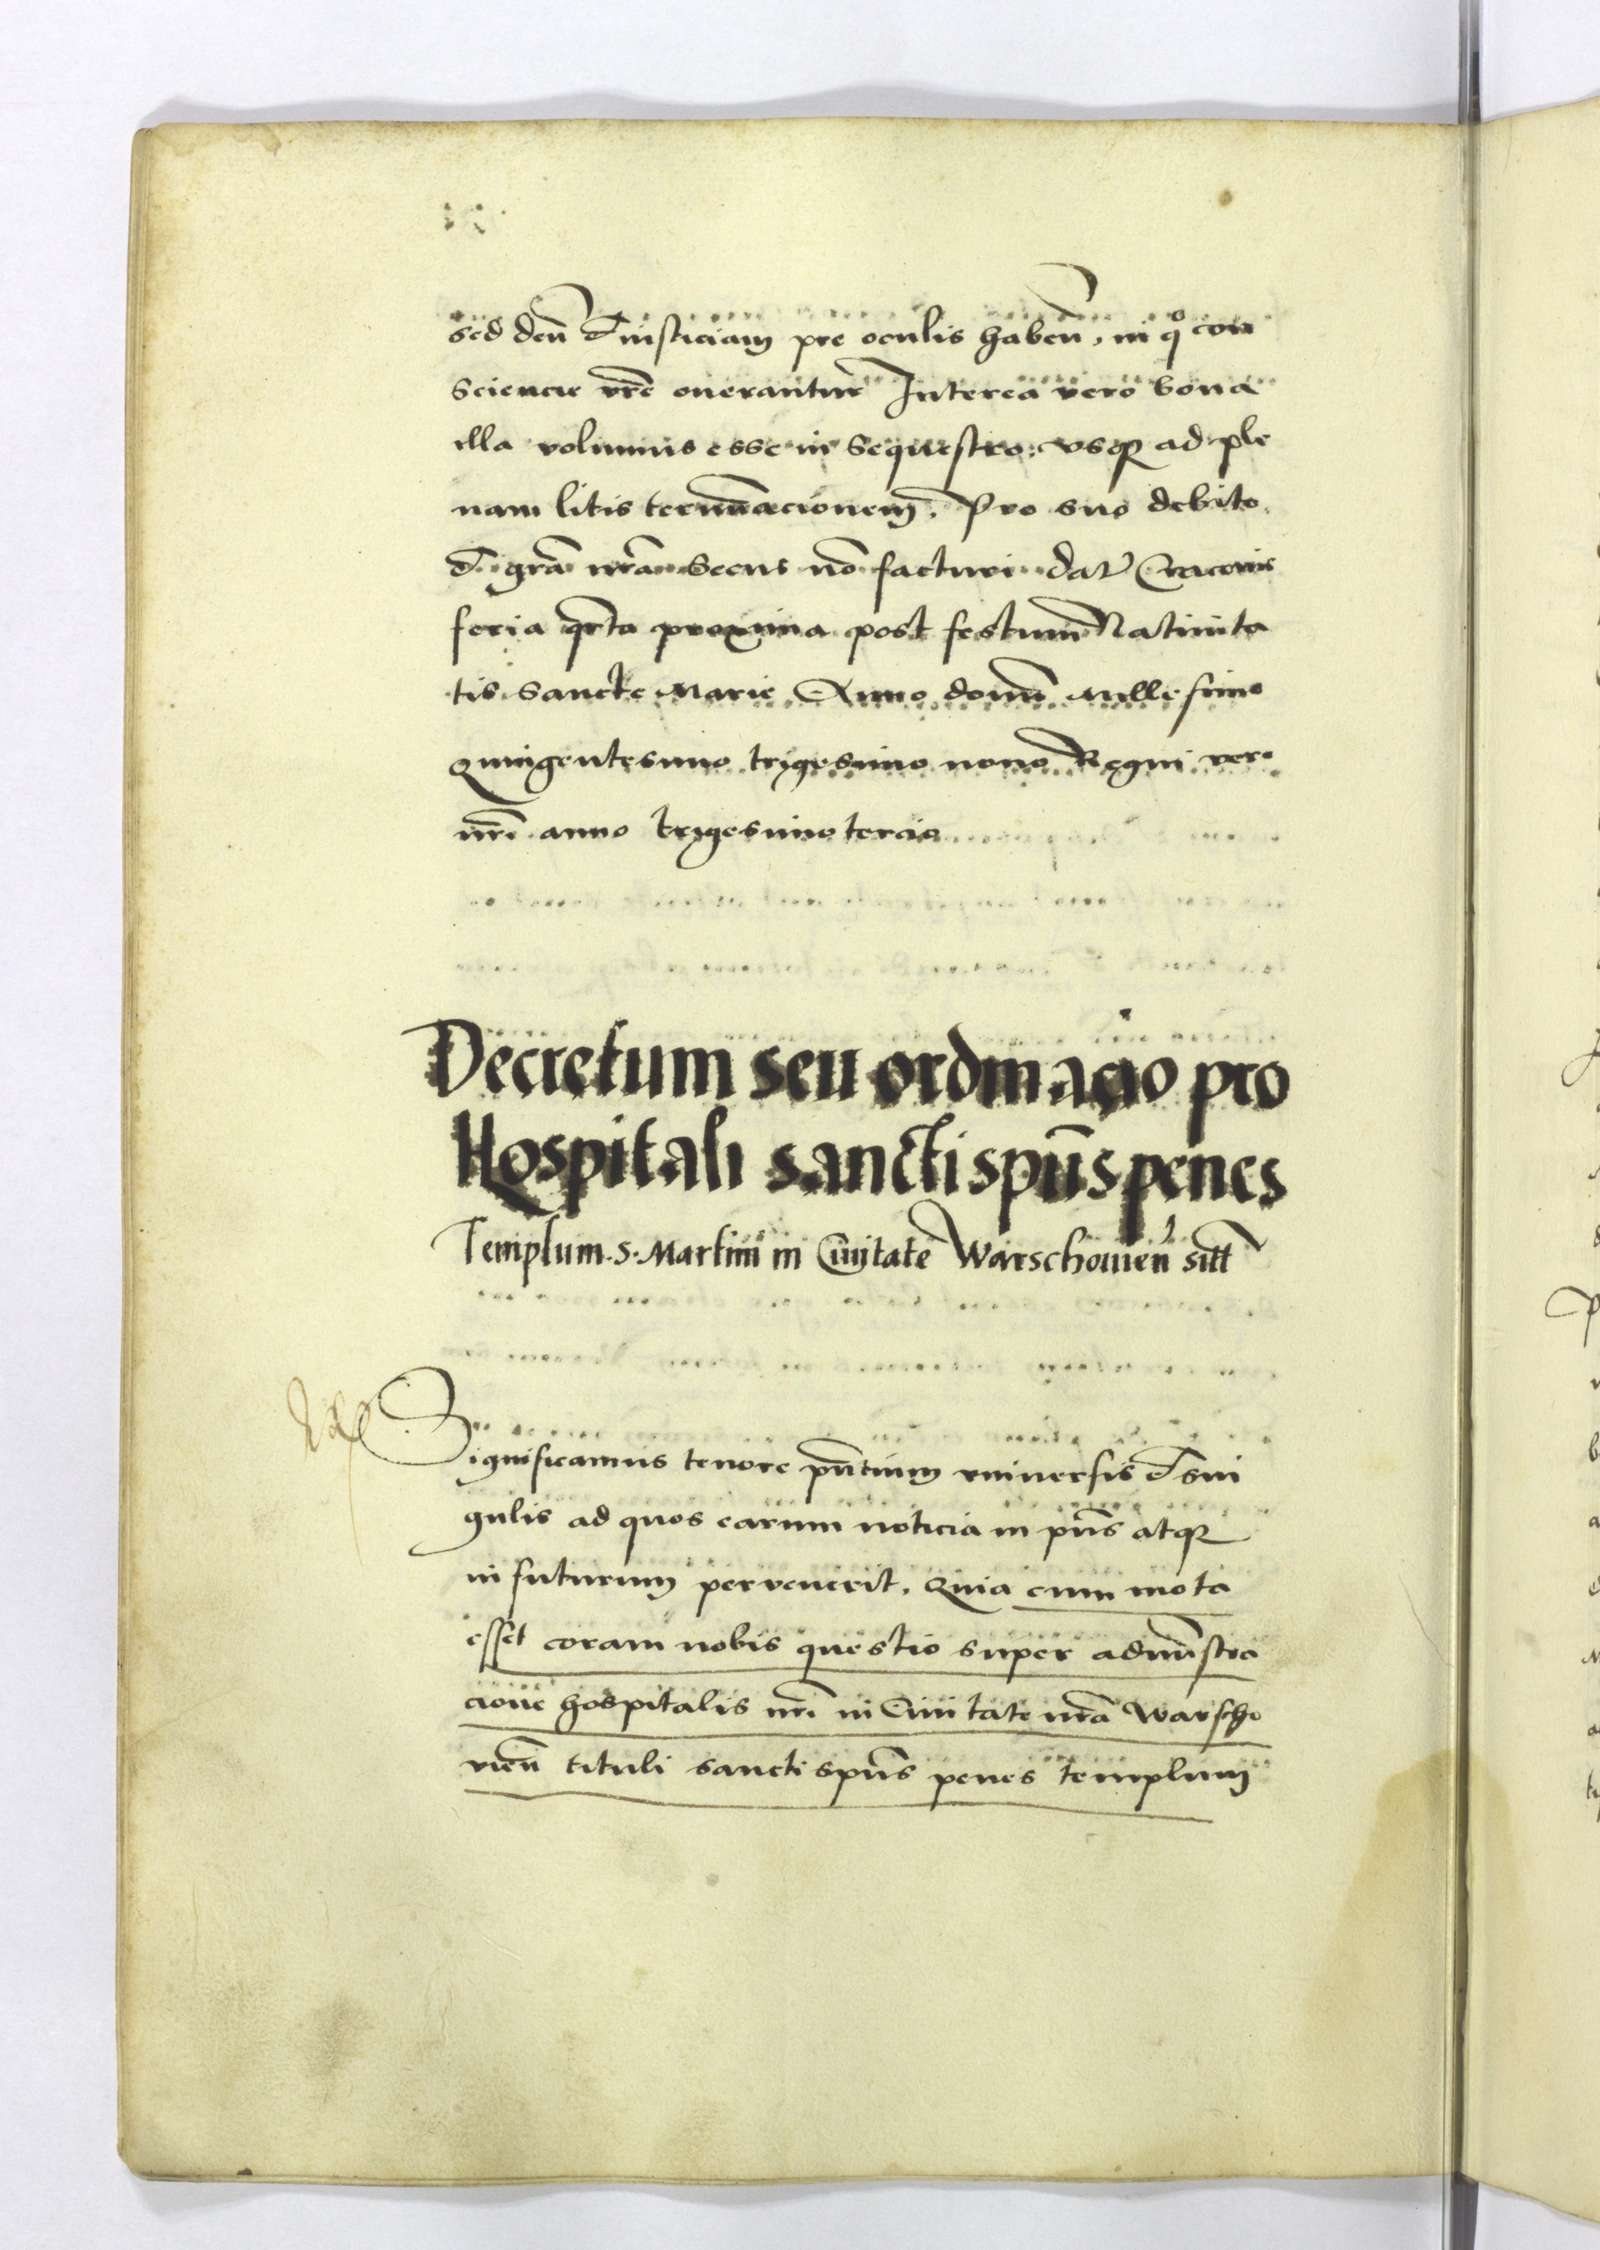 sed deū et iusticiam pre oculis habeñ, in qͦ con
sciencie vr̃e onerantur Interea vero bona
illa volumus esse in sequestro, vsqꝫ ad ple
nam litis termīacionem. Pro suo debito
et gr̃a nr̃a secus nō facturi dat̃ Cracouie
feria qrta proxima post festum Natiuita
tis sancte Marie Anno domī Millesimo
Quingentesimo trigesimo nono Regni vero
nr̃i anno trigesimo tercio
Decretum seu ordinacio pro
Hospitali sancti spūs penes
Templum .S. Martini in Ciuitate Warschouień sitt̄
Significamus tenore pn̄tium vniuersis et sin
gulis ad quos earum noticia in pn̄s atqꝫ
in futurum peruenerit, Quia cum mota
esset coram nobis questio super admīstra
cione hospitalis nr̃i in Ciuitate nr̃a Warscho
uień tituli sancti spūs penes templum